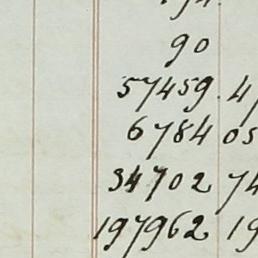 90
57459. 4
6784 05
34702 74
197962 19